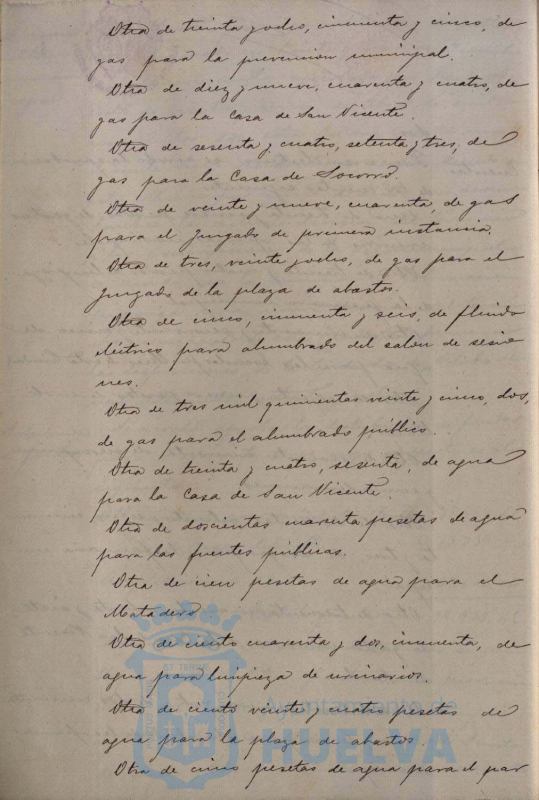 Otra de treinta y ocho, cincuenta y cinco, de
gas para la prevencion municipal.
Otra de diez y nueve, cuarenta y cuatro, de
gas para la Casa de San Vicente.
Otra de sesenta y cuatro, setenta y tres, de
gas para la Casa de Socorro.
Otra de veinte y nueve, cuarenta, de gas
para el Juzgado de primera instancia.
Otra de tres, veinte y ocho, de gas para el
Juzgado de la plaza de abastos.
Otra de cinco, cincuenta y seis, de fluido
eléctrico para alumbrado del salon de sesio
nes.
Otra de tres mil quinientas veinte y cinco, dos,
de gas para el alumbrado público.
Otra de treinta y cuatro, sesenta, de agua
para la Casa de San Vicente.
Otra de doscientas cuarenta pesetas de agua
para las fuentes públicas.
Otra de cien pesetas de agua para el
Matadero
Otra de ciento cuarenta y dos, cincuenta, de
agua para limpieza de urinarios.
Otra de ciento veinte y cuatro pesetas de
agua para la plaza de abastos
Otra de cinco pesetas de agua para el par
Ayuntamiento de
HUELVA